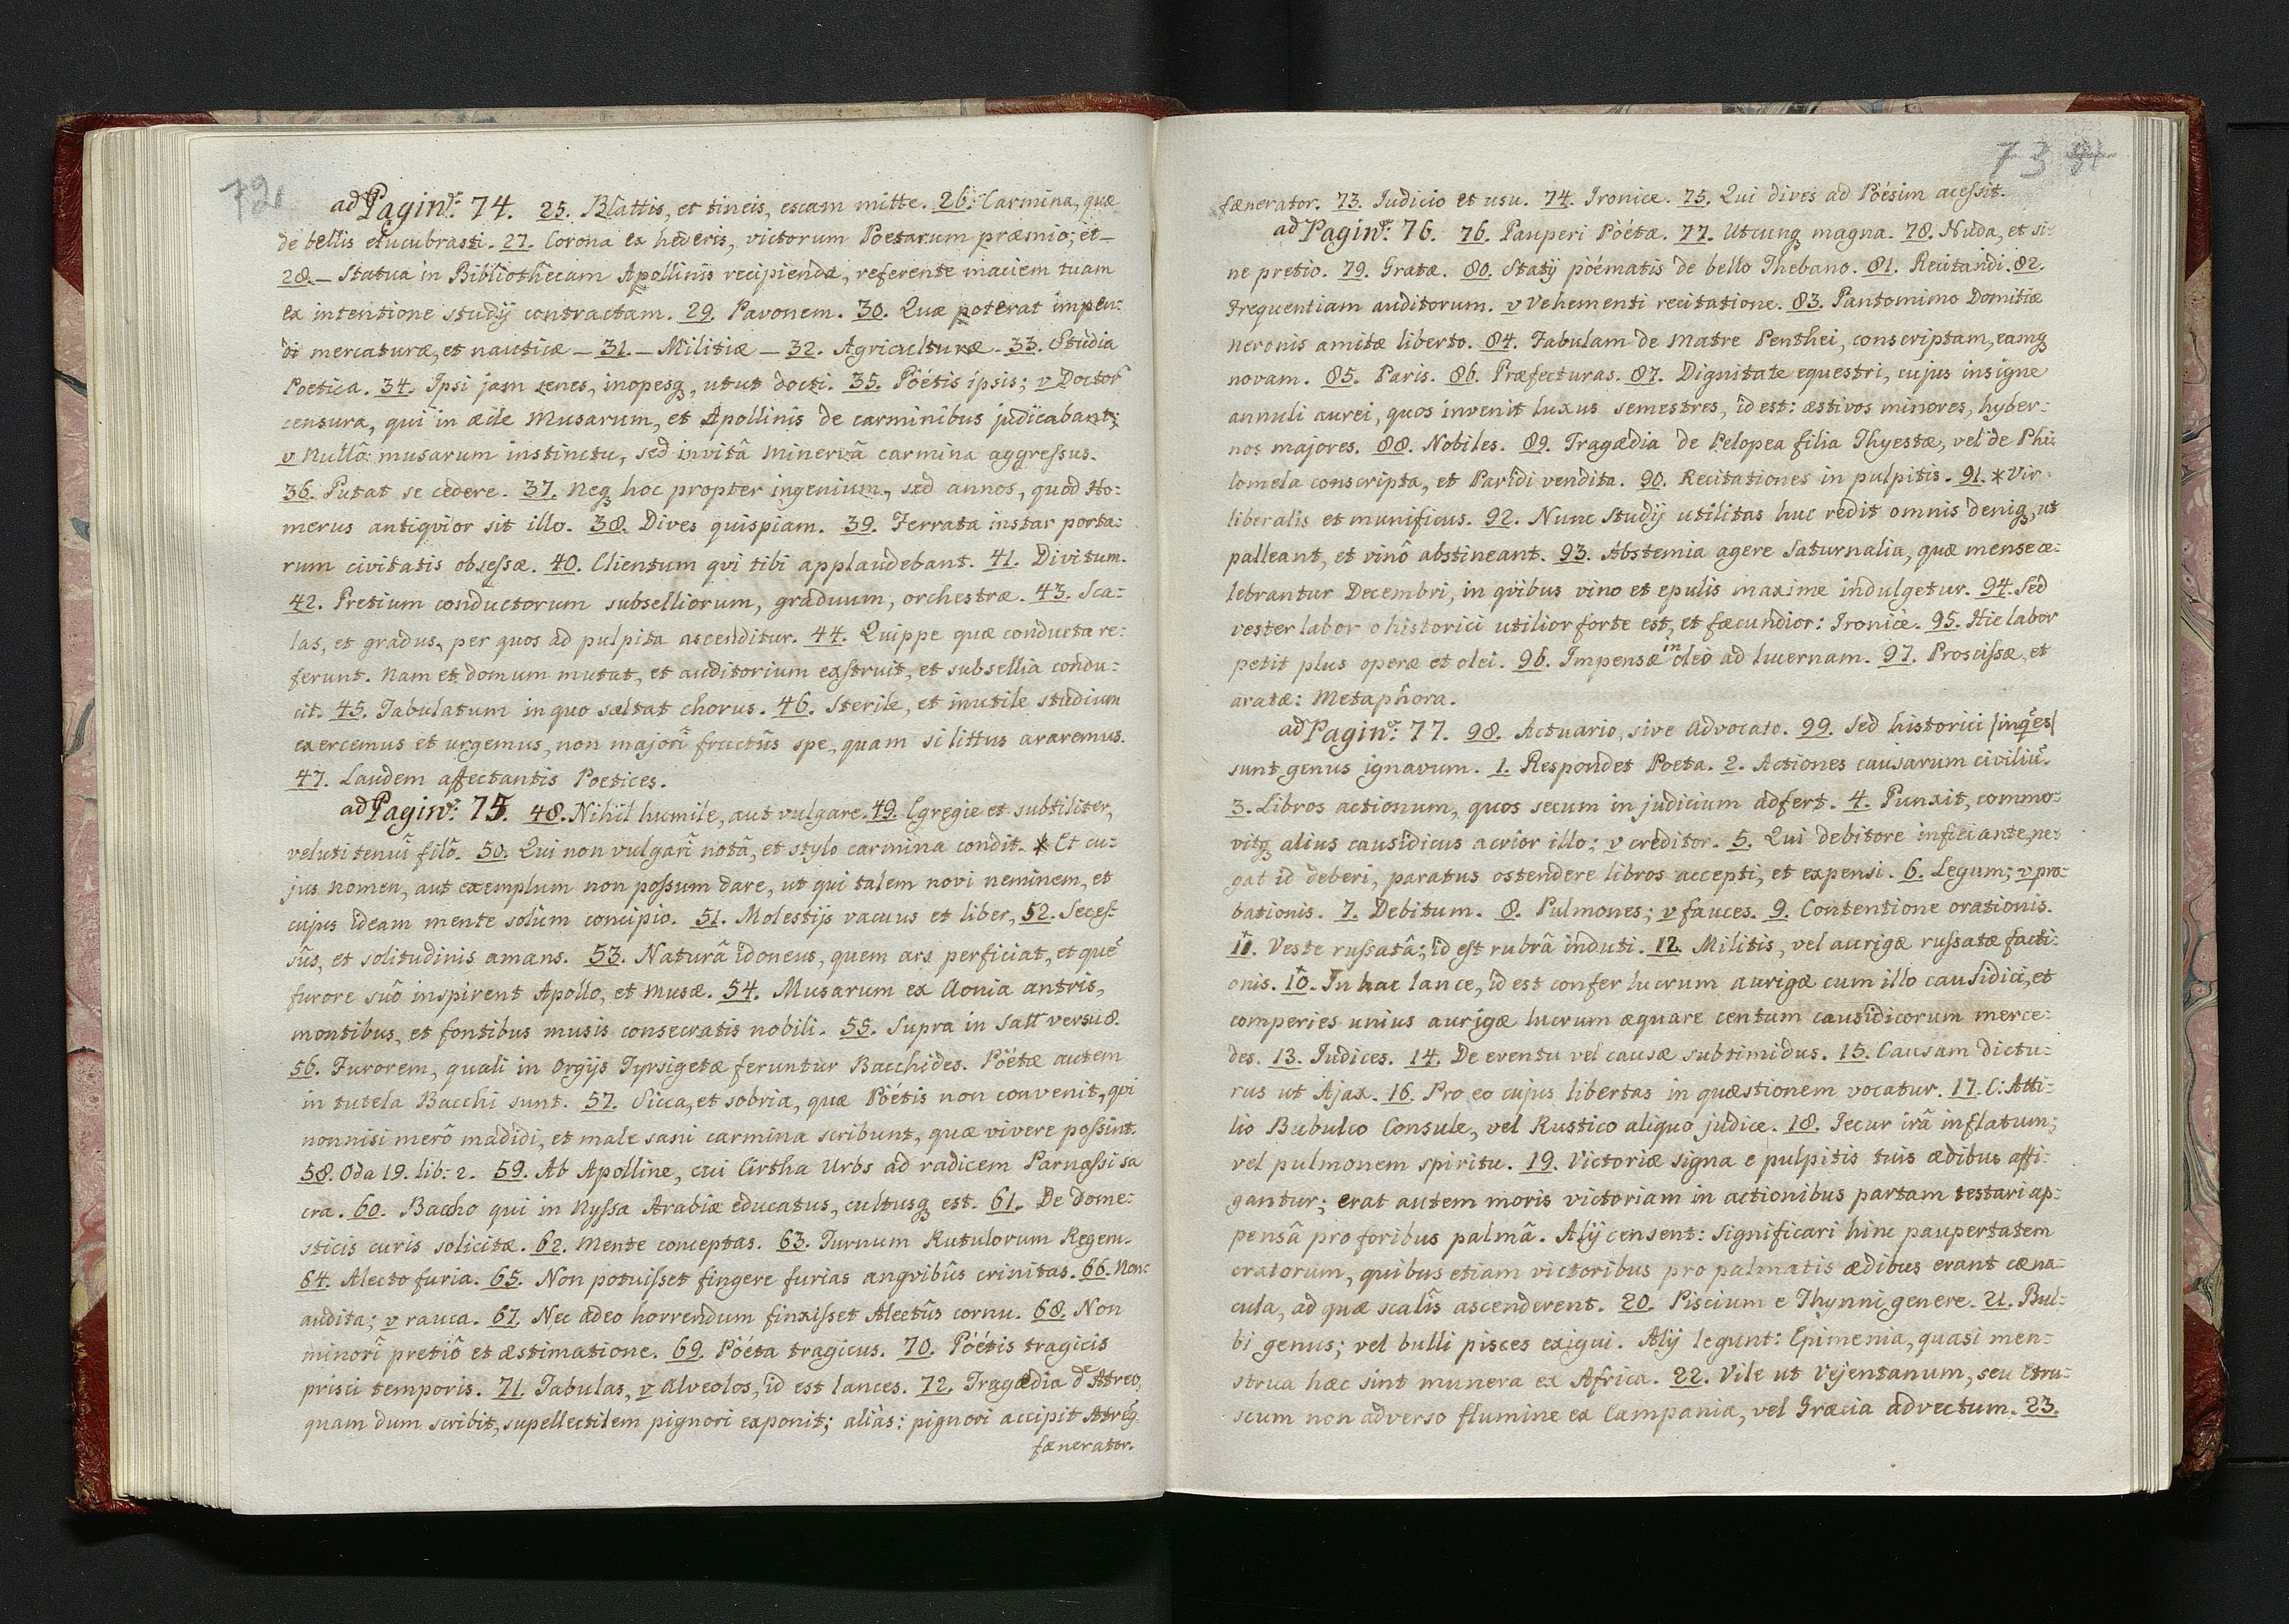 72
ad Pagin̄: 74. 25. Blattis, et tineis, escam mitte. 26. Carmina, quæ
de bellis elucubrasti. 27. Corona ex hederis, victorum Poetarum præmio; et –
28. – Statua in Bibliothecam Apollinis recipienda, referente maciem tuam
ex intentione studij contractam. 29. Pavonem. 30. Quæ poterat impen:
di mercaturæ, et nauticæ – 31. – Militiæ – 32. Agriculturæ – 33. Studia
Poetica. 34. Ipsi jam senes, inopesq, utut docti. 35. Poétis ipsis; v Doctor̄
censura, qui in æde Musarum, et Apollinis de carminibus judicabant;
v Nullô musarum instinctu, sed invitâ Minervâ carmina aggressus.
36. Putat se cedere. 37. Neq hoc propter ingenium, sed annos, quod Ho:
merus antiqvior sit illo. 38. Dives quispiam. 39. Ferrata instar porta:
rum civitatis obsessæ. 40. Clientum qvi tibi applaudebant. 41. Divitum.
42. Pretium conductorum subselliorum, graduum, orchestræ. 43. Sca:
las, et gradus, per quos ad pulpita ascenditur. 44. Quippe quæ conducta re:
ferunt. Nam et domum mutat, et auditorium exstruit, et subsellia condu:
cit. 45. Tabulatum in quo saltat chorus. 46. Sterile, et inutile studium
exercemus et urgemus, non majori fructûs spe, quam si littus araremus.
47. Laudem affectantis Poetices.
ad Pagin̄: 75. 48. Nihil humile, aut vulgare. 49. Egregie et subtiliter,
veluti tenui filô. 50. Qui non vulgari notâ, et stylo carmina condit. * Et cu:
jus nomen, aut exemplum non possum dare, ut qui talem novi neminem, et
cujus ideam mente solùm concipio. 51. Molestijs vacuus et liber, 52. Seces:
sûs, et solitudinis amans. 53. Naturâ idoneus, quem ars perficiat, et quē
furore suô inspirent Apollo, et Musæ. 54. Musarum ex Aonia antris,
montibus, et fontibus musis consecratis nobili. 55. Supra in Satt versu 8.
56. Furorem, quali in Orgijs Tyrsigetæ feruntur Bacchides. Poëtæ autem
in tutela Bacchi sunt. 57. Sicca, et sobria, quæ Poétis non convenit, qvi
nonnisi merô madidi, et male sani carmina scribunt, quæ vivere possint.
58. Oda 19. lib: 2. 59. Ab Apolline, cui Cirtha Urbs ad radicem Parnassi sa
cra. 60. Baccho qui in Nyssa Arabiæ educatus, cultusq est. 61. De dome:
sticis curis solicitæ. 62. Mente conceptas. 63. Turnum Rutulorum Regem.
64. Alecto furia. 65. Non potuisset fingere furias angvibûs crinitas. 66. Non
audita; v rauca. 67. Nec adeo horrendum finxisset Alectûs cornu. 68. Non
minori pretiô et æstimatione. 69. Poéta tragicus. 70. Poétis tragicis
prisci temporis. 71. Tabulas, v Alveolos, id est lances. 72. Tragœdia d Atreo,
quam dum scribit, supellectilem pignori exponit; aliàs: pignori accipit Atreq
fænerator.
73 81
fænerator. 73. Judicio et usu. 74. Ironice. 75. Qui dives ad Poésim acessit.
ad Pagin̄: 76. 76. Pauperi Poétæ. 77. Utcunq magna. 78. Nuda, et si:
ne pretio. 79. Gratæ. 80. Statij poématis de bello Thebano. 81. Recitandi. 82.
Frequentiam auditorum. v Vehementi recitatione. 83. Pantomimo Domitiæ
Neronis amitæ liberto. 84. Fabulam de Matre Penthei, conscriptam, eamq
novam. 85. Paris. 86. Præfecturas. 87. Dignitate equestri, cujus insigne
annuli aurei, quos invenit luxus semestres, id est: æstivos minores, hyber:
nos majores. 88. Nobiles. 89. Tragædia de Pelopea filia Thyestæ, vel de Phi:
lomela conscripta, et Paridi vendita. 90. Recitationes in pulpitis. 91. * Vir
liberalis et munificus. 92. Nunc studij utilitas huc redit omnis deniq, ut
palleant, et vinô abstineant. 93. Abstemia agere Saturnalia, quæ mense ce:
lebrantur Decembri, in qvibus vino et epulis maxime indulgetur. 94. Sed
vester labor o historici utilior forte est, et fæcundior: Ironicè. 95. Hic labor
petit plus operæ et olei. 96. Impensæ in oleo ad lucernam. 97. Proscissæ, et
aratæ: Metaphora.
ad Pagin̄: 77. 98. Actuario, sive Advocato. 99. Sed historici /inqes/
sunt genus ignavum. 1. Respondet Poeta. 2. Actiones causarum civiliū.
3. Libros actionum, quos secum in judicium adfert. 4. Punxit, commo:
vitq alius causidicus acrior illo; v creditor. 5. Qui debitore inficiante, ne:
gat id deberi, paratus ostendere libros accepti, et expensi. 6. Legum; v pro:
bationis. 7. Debitum. 8. Pulmones; v fauces. 9. Contentione orationis.
11. Veste russatâ; id est rubrâ induti. 12. Militis, vel aurigæ russatæ facti:
onis. 10. In hac lance, id est confer lucrum aurigæ cum illo causidici, et
comperies unius aurigæ lucrum æquare centum causidicorum merce:
des. 13. Judices. 14. De eventu vel causæ subtimidus. 15. Causam dictu:
rus ut Ajax. 16. Pro eo cujus libertas in quæstionem vocatur. 17. C: Atti:
lio Bubulco Consule, vel Rustico aliquo judice. 18. Jecur irâ inflatum;
vel pulmonem spiritu. 19. Victoriæ signa e pulpitis tuis ædibus affi:
gantur; erat autem moris victoriam in actionibus partam testari ap:
pensâ pro foribus palmâ. Alij censent: significari hinc paupertatem
oratorum, quibus etiam victoribus pro palmatis ædibus erant cæna:
cula, ad quæ scalîs ascenderent. 20. Piscium e Thynni genere. 21. Bul:
bi genus; vel bulli pisces exigui. Alij legunt: Epimenia, quasi men:
strua hæc sint munera ex Africa. 22. Vile ut Vejentanum, seu Etru:
scum non adverso flumine ex Campania, vel Græcia advectum. 23.